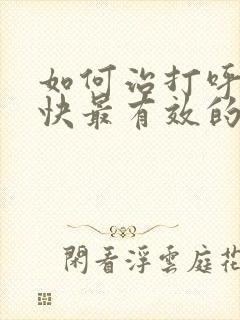 如何治打呼
快最有效的
閑看浮雲庭花